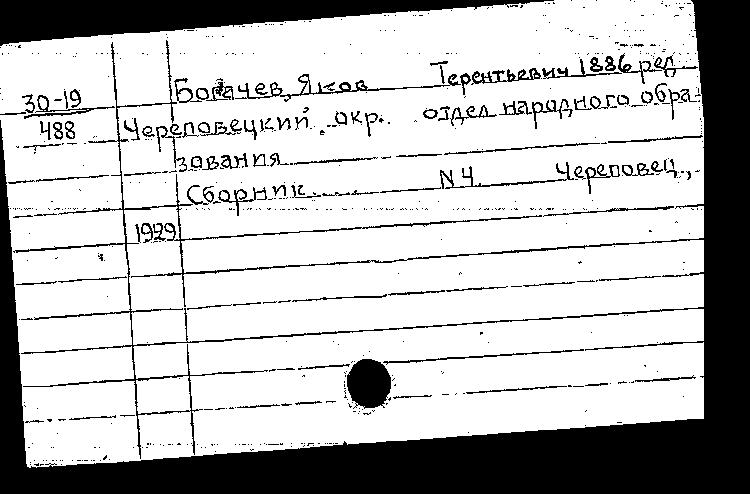 Богачев, Яков Терентьевич 1886 ред.
30-19
488
Череповецкий окр. отдел народного обра-
зования
Сборник..... N 4. Череповец.,
1929